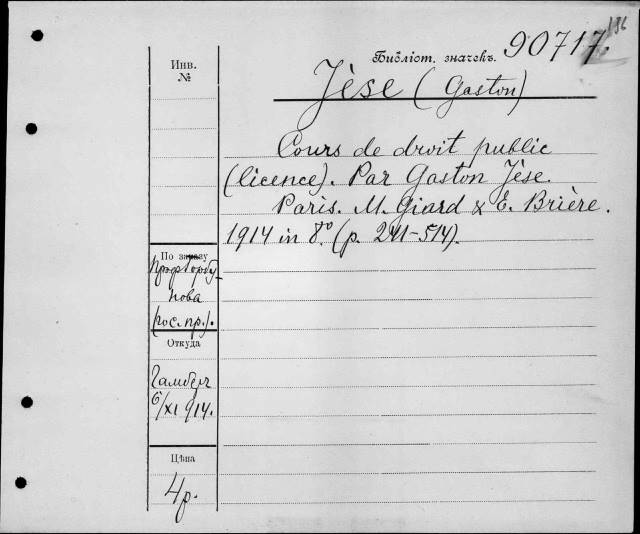 196
Библіот. значекъ. 90717.
Инв.
№
Jèse (Gaston)
Cours de droit public
(licence). Par Gaston Jèse.
Paris. M. Giard & E. Brière.
1914 in 8º. (p. 241-514).
По заказу
Проф Горбу-
нова
(гос. пр.).
Откуда
Гамберг
6/XI 914.
Цѣна
4р.